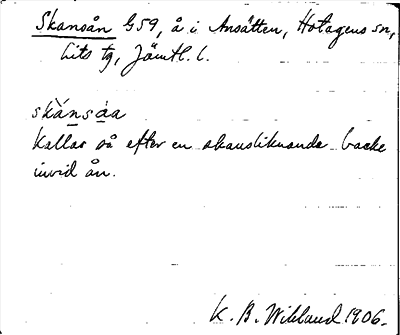 Skansån G59, å i Ansätten, Hotagens sn,
Lits tg, Jämtl. l.
skànsáa
Kallas så efter en skansliknande backe
invid ån.
K. B. Wiklund 1906.